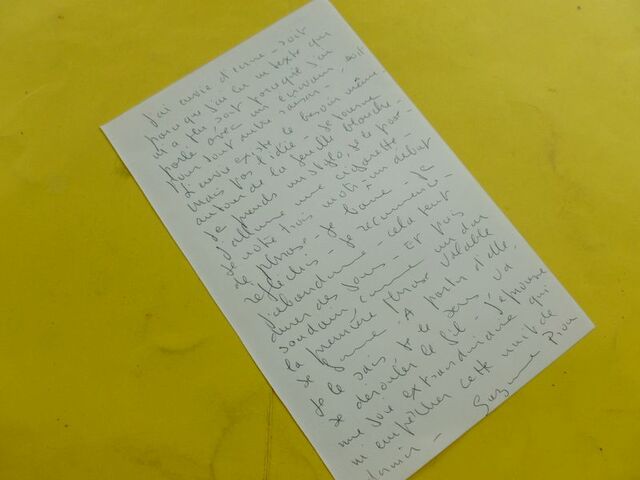 J'ai envie d'écrire - soit
parce que j'ai lu un texte qui
m'a plu soit parce que j'ai
parlé avec un écrivain - soit
pour tout autre raison -
L'envie existe le besoin même -
mais pas l'idée - je tourne
autour de la feuille blanche -
je prends un stylo, je le pose -
j'allume une cigarette -
je note trois mots - un début
de phrase - je barre - je
réfléchis - je recommence -
j'abandonne - cela peut
durer des jours - Et puis
soudain comme un don
la première phrase valable
se forme. A partir d'elle,
je le sais, je le sens va
se dérouler le fil - j'éprouve
une joie extraordinaire qui
m'empêcher cette nuit de
dormir - Suzanne Prou